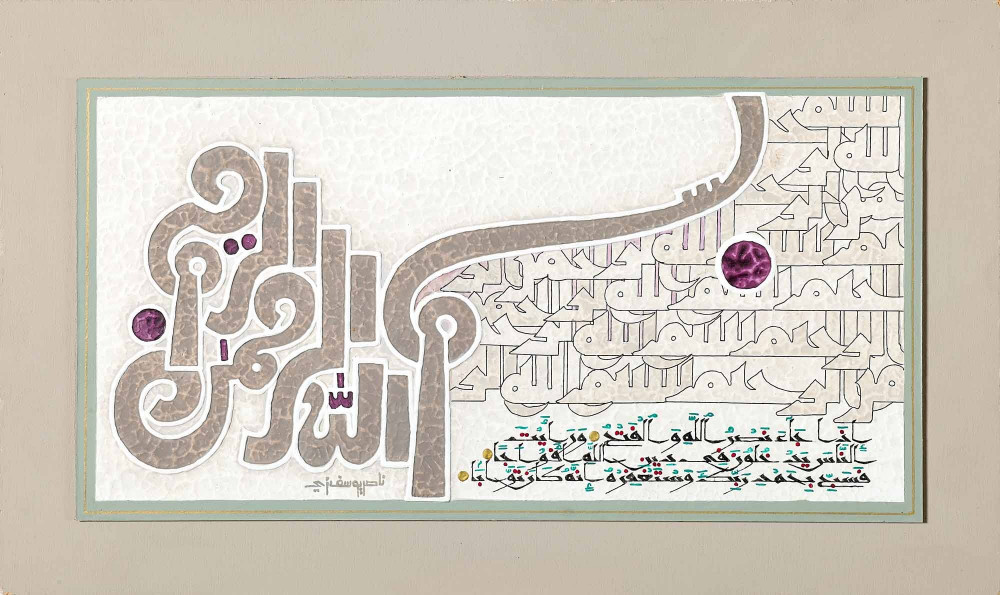 بسم الله الرحمن الرحيم
إذا جاء نصر الله والفتح ورأيت
الناس يدخلون في دين الله أفواجا
فسبح بحمد ربك واستغفره إنه كان توابا
ناصر يوسفزي